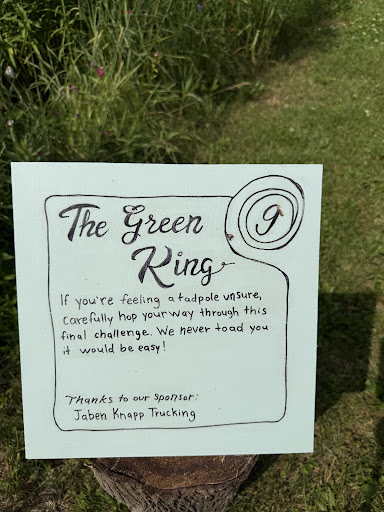 The Green
King
9
If you're feeling a tadpole unsure,
carefully hop your way through this
final challenge. We never toad you
it would be easy!
Thanks to our sponsor:
Jaben Knapp Trucking